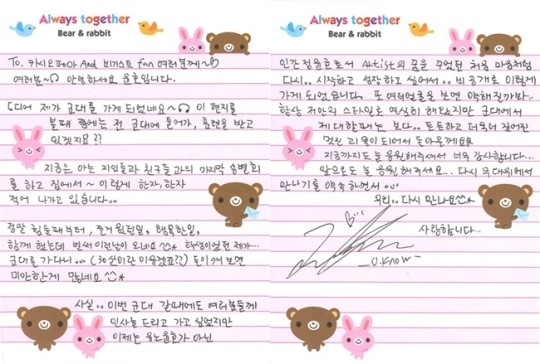 Always together
Bear & rabbit
To. 카시오페아 And 비기스트 for 여러분께~
여러분~ 안녕하세요 윤호입니다.
드디어 제가 군대를 가게 되었네요~ 이 편지를
볼때 쯤에는 전 군대에 들어가, 훈련을 받고
있겠지요??
지금은 아는 지인들과 친구들과의 마지막 송별회
를 하고 집에서~ 이렇게 한자, 한자
적어 나가고 있습니다..
정말 힘들때부터, 즐거웠던일, 행복한일,
함께 했는데 벌써 이런날이 오네요 학생이었던 제가...
군대를 가다니.. (30살이란 이유겠죠??) 돌이켜 보면
미안한게 많네요
사실.. 이번 군대 갈때에도 여러분들께
인사를 드리고 가고 싶었지만
이제는 유노윤호가 아닌
Always together
Bear & rabbit
인간 정윤호로서 Artist의 꿈을 꾸었던 처음 마음처럼
다시.. 시작하고 성장하고 싶어서.. 비공개로 이렇게
가게 되었습니다. 또 여러분들을 보면 약해질까봐..
항상 저만의 스타일로 열심히 해왔지만 군대에서
제대할때는 보다.. 튼튼하고 더욱더 깊어진
멋진 리더이 되어서 돌아올게요
지금까지도 늘 응원해주셔서 너무 감사합니다...
앞으로도 늘 응원해주세요.. 다시 무대위에서
만나기를 약속하면서..
우리.. 다시 만나요
사랑합니다...
-U.KNOW-